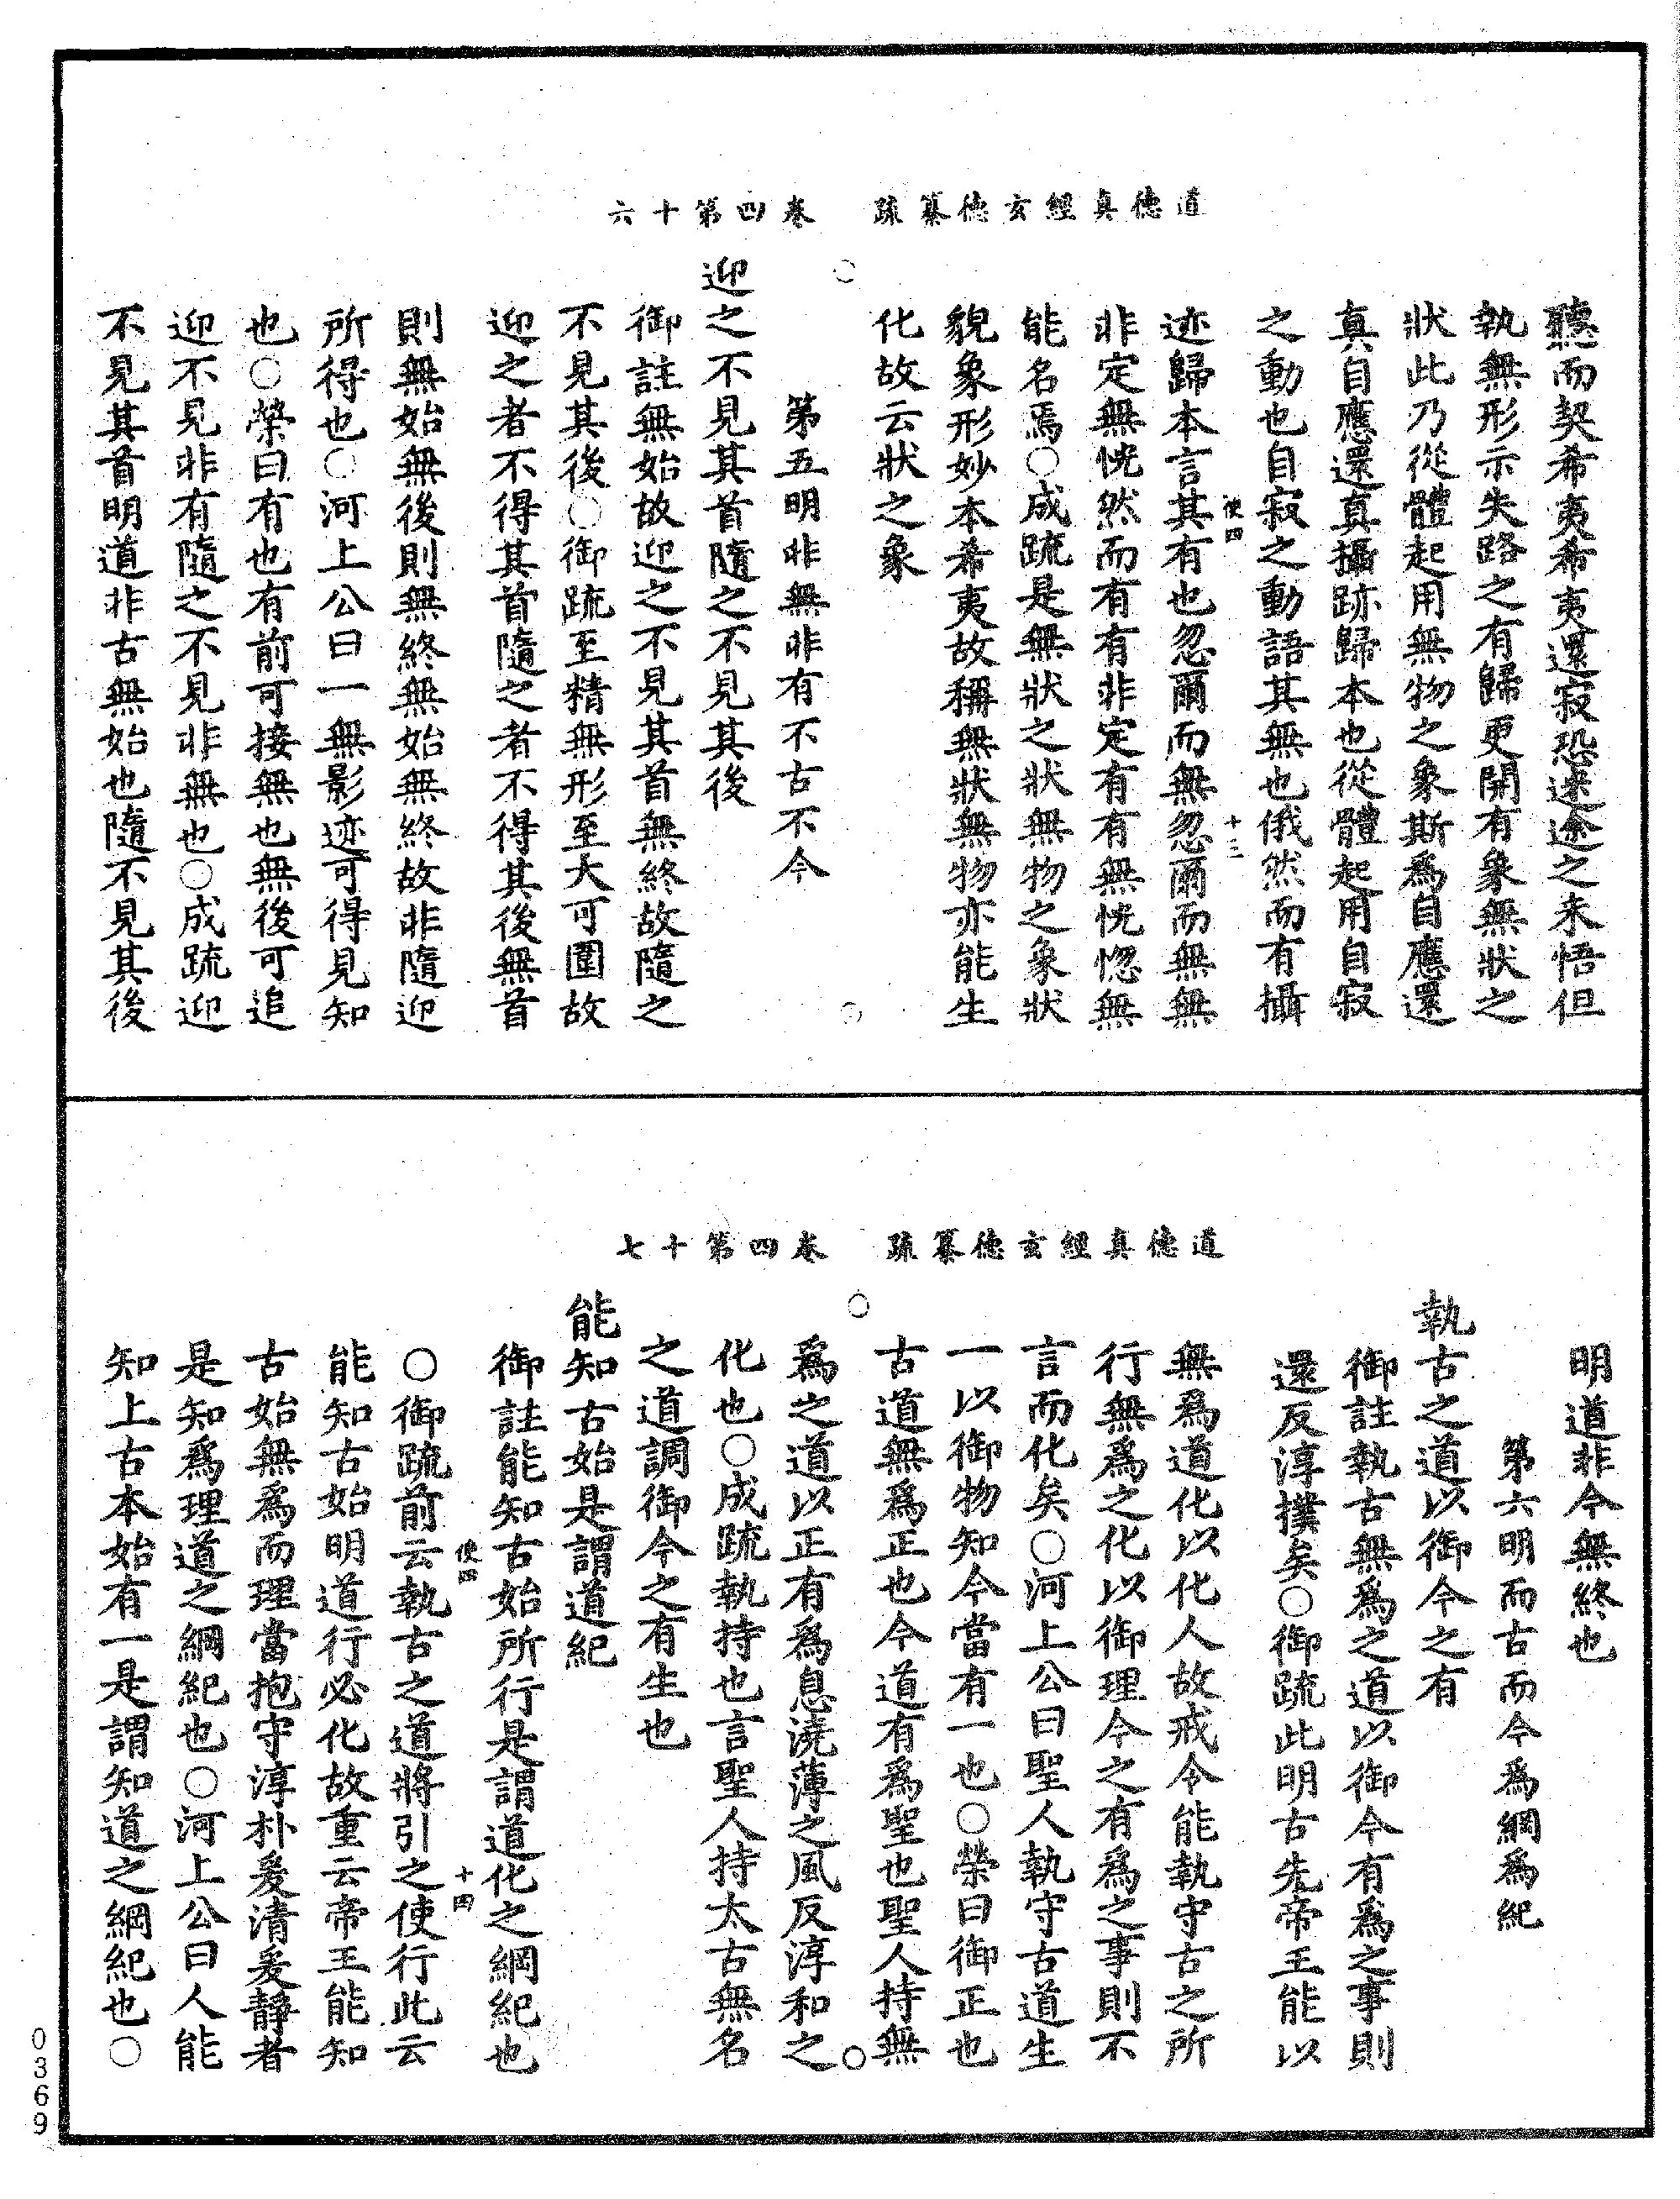 道德真經玄德纂疏　卷四第十六
聽而契希夷希夷還寂恐迷途之未悟但
執無形示失路之有歸更開有象無狀之
狀此乃從體起用無物之象斯爲自應還
真自應還真攝跡歸本也從體起用自寂
之動也自寂之動語其無也俄然而有攝
迹歸本言其有也忽爾而無忽爾而無無
使四　十三
非定無恍然而有有非定有有無恍惚無
能名焉○成疏是無狀之狀無物之象狀
貌象形妙本希夷故稱無狀無物亦能生
化故云狀之象
第五明非無非有不古不今
迎之不見其首隨之不見其後
御註無始故迎之不見其首無終故隨之
不見其後○御疏至精無形至大可圍故
迎之者不得其首隨之者不得其後無首
則無始無後則無終無始無終故非隨迎
所得也○河上公曰一無影迹可得見知
也○榮曰有也有前可接無也無後可追
迎不見非有隨之不見非無也○成疏迎
不見其首明道非古無始也隨不見其後
道德真經玄德纂疏　卷四第十七
明道非今無終也
第六明而古而今爲綱爲紀
執古之道以御今之有
御註執古無爲之道以御今有爲之事則
還反淳撲矣○御疏此明古先帝王能以
無爲道化以化人故戒令能執守古之所
行無爲之化以御理今之有爲之事則不
言而化矣○河上公曰聖人執守古道生
一以御物知今當有一也○榮曰御正也
古道無爲正也今道有爲聖也聖人持無
爲之道以正有爲息澆薄之風反淳和之
化也○成疏執持也言聖人持太古無名
之道調御今之有生也
能知古始是謂道紀
御註能知古始所行是謂道化之綱紀也
使四　十四
○御疏前云執古之道將引之使行此云
能知古始明道行必化故重云帝王能知
古始無爲而理當抱守淳朴爰清爰靜者
是知爲理道之綱紀也○河上公曰人能
知上古本始有一是謂知道之綱紀也○
0369